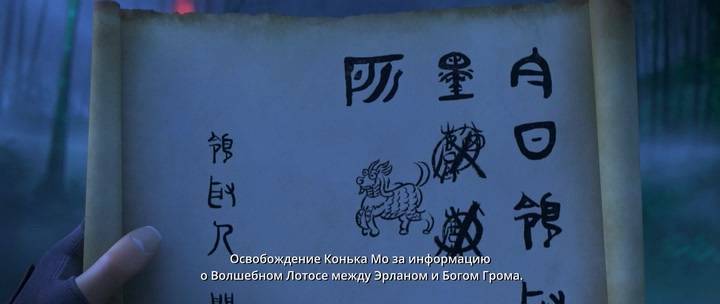 今日領取
墨
領取人
Освобождение Конька Мо за информацию
о Волшебном Лотосе между Эрланом и Богом Грома.